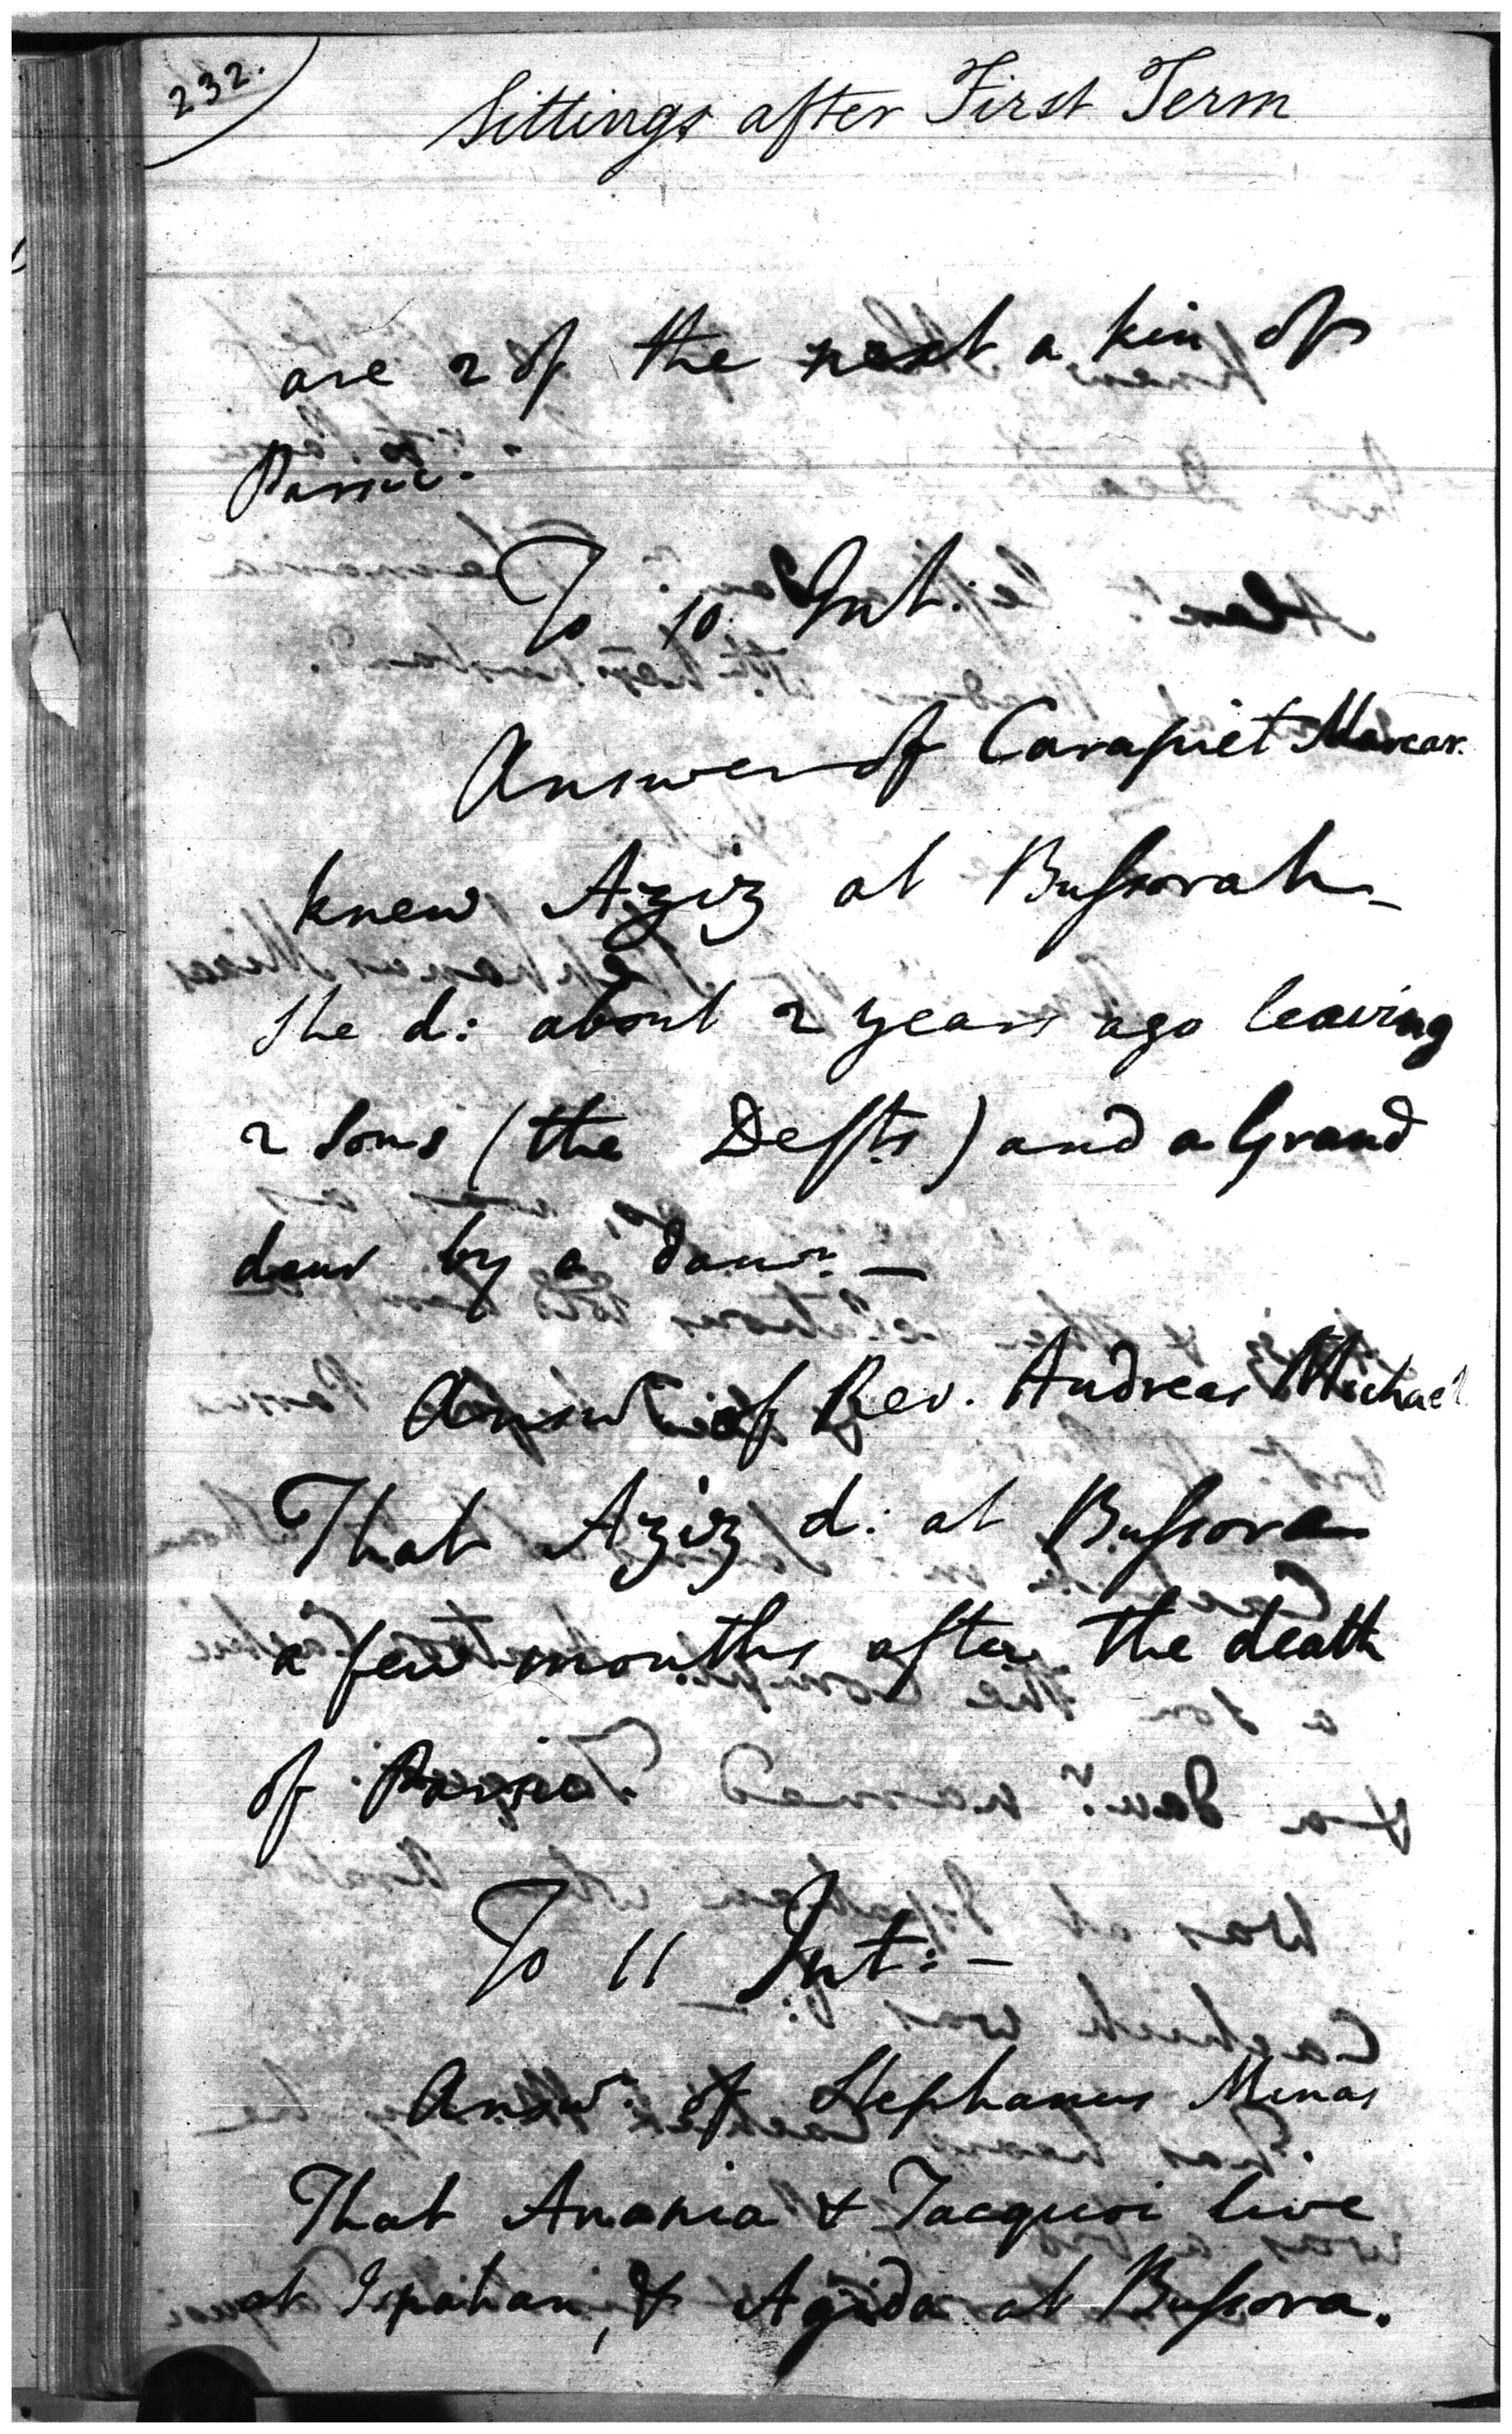 232.
Sittings after First Term
are 2 of the next a kin of
Parsic.
To 10 Int:
Answer of Carapiet Marcar.
knew Aziz at Bussorah -
She d: about 2 years ago leaving
2 Sons (the Defts) and a Grand
daur by a daur. —
Answr of Rev. Andreas Michael
That Aziz d: at Bussora
a few months after the death
of Parsic
To 11 Int: -
Answr. of Stephanus Minas
That Anania & Tacquoi live
at Ispahan, & Agida at Bussora.